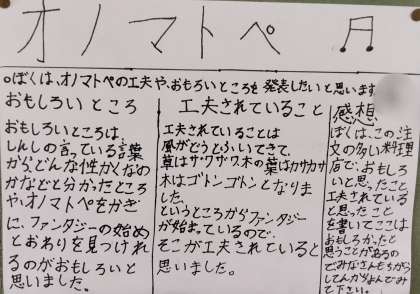 オノマトペ ♬
。ぼくは、オノマトペの工夫や、おもろいところを発表したいと思います
おもしろいところ
おもしろいところは、
しんしの言っている言葉
からどんな性かくなの
かなどと分かったところ
や、オノマトペをかぎ
に、ファンタジーの始め
とおわりを見つけれ
るのがおもしろいと
思いました。
工夫されていること
工夫されていることは
風がどうとふいてきて、
草はザワザワ、木の葉はカサカサ
木はゴトンゴトンとなりま
した。
というところからファンタジー
が始まっているので、
そこが工夫されていると
思いました。
感想
ぼくは、この注
文の多い料理
店で、おもしろ
いと思ったこと
工夫されている
と思ったこと
を書いてここは
おもしろかったと
思うことがあるの
でみなさんもちゅうも
してんからよんでみ
て下さい。